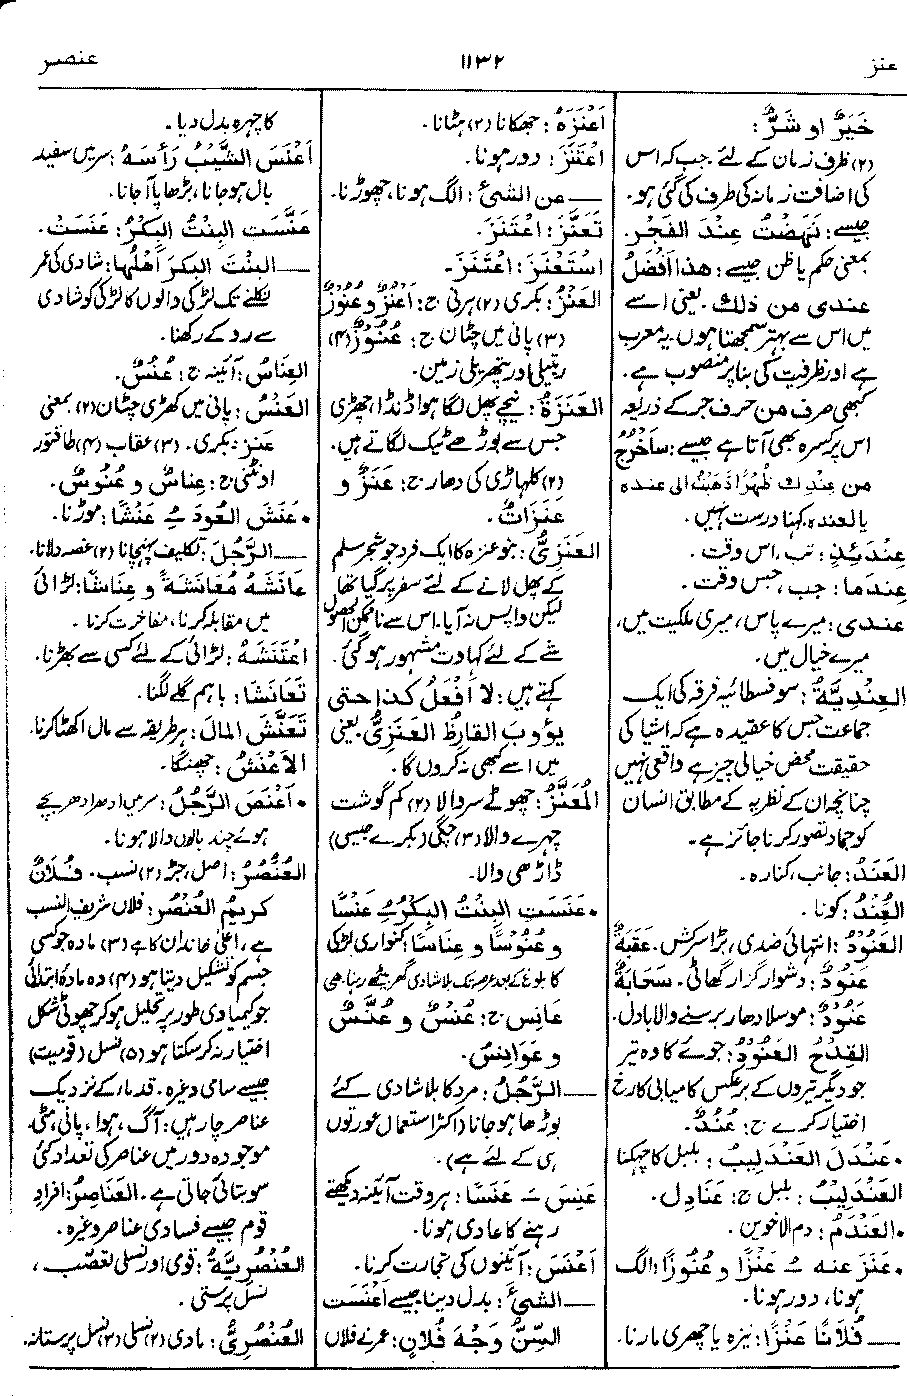 عنز
۱۱۳۲
عنصر
خَيْرٌ او شَرٌّ:
(۲) ظرف زمان کے لئے۔ جب کہ اس
کی اضافت زمانہ کی طرف کی گئی ہو۔
جیسے: نَهَضْتُ عِنْدَ الفَجْرِ۔
بمعنی حکم یا ظن جیسے: هذا أفْضَلُ
عندی من ذلك۔ یعنی اسے
میں اس سے بہتر سمجھتا ہوں۔ یہ معرب
ہے اور ظرفیت کی بنا پر منصوب ہے۔
کبھی صرف من حرف جر کے ذریعہ
اس پر کسرہ بھی آتا ہے جیسے: سَأخرُجُ
من عِندِك ظُهْرًا ذَهَبْتُ الى عنده
یا لعنده۔ کہنا درست نہیں۔
عِنْدَئِذٍ: تب، اس وقت۔
عِندَما: جب، جس وقت۔
عِندی: میرے پاس، میری ملکیت میں،
میرے خیال میں۔
العِنْدِيَّةُ: سوفسطائیہ فرقہ کی ایک
جماعت جس کا عقیدہ ہے کہ اشیا کی
حقیقت محض خیالی چیز ہے واقعی نہیں
چنانچہ ان کے نظریہ کے مطابق انسان
کو جماد تصور کرنا جائز ہے۔
العَنَدُ: جانب، کنارہ۔
العُنْدُ: کونا۔
العَنُوْدُ: انتہائی ضدی، بڑا سرکش۔ عَقَبَةٌ
عَنُودٌ: دشوار گزار گھاٹی۔ سَحَابَةٌ
عَنُودٌ: موسلا دھار برسنے والا بادل۔
القِدْحُ العَنُوْدُ: جوے کا وہ تیر
جو دیگر تیروں کے برعکس کامیابی کا رخ
اختیار کرے ج: عُنُدٌ۔
• عَنْدَلَ العَنْدَلِيبُ: بلبل کا چہکنا
العَنْدَلِيْبُ: بلبل ج: عَنَادِل۔
• العَنْدَمُ: دم الاخوین۔
• عَنَزَ عنه ـُ عَنْزًا و عُنُوزًا: الگ
ہونا، دور ہونا۔
ـــ فُلَانًا عَنْزًا: نیزہ یا چھری مارنا۔
أعْنَزَهُ: جھکانا (۲) ہٹانا۔
اعْتَنَزَ: دور ہونا۔
ـــ من الشیٔ: الگ ہونا، چھوڑنا۔
تَعَنَّزَ: اعْتَنَزَ۔
اسْتَعْنَزَ: اعْتَنَزَ۔
العَنْزُ: بکری (۲) ہرنی ج: أعْنُزٌ و عُنُوزٌ
(۳) پانی میں چٹان ج: عُنُوزٌ (۴)
ریتیلی اور پتھریلی زمین۔
العَنَزَةُ: نیچے پھل لگا ہوا ڈنڈا، چھڑی
جس سے بوڑھے ٹیک لگاتے ہیں۔
(۲) کلہاڑی کی دھار۔ ج: عَنَزٌ و
عَنَزَاتٌ۔
العَنَزِیُّ: بنو عنزہ کا ایک فرد جو شجر سلم
کے پھل لانے کے لئے سفر پر گیا تھا
لیکن واپس نہ آیا۔ اس سے ناممکن الحصول
شے کے لئے کہاوت مشہور ہو گئی۔
کہتے ہیں: لا أفْعَلُ كذا حتى
يؤوبَ القارِظُ العَنَزِیُّ۔ یعنی
میں اسے کبھی نہ کروں گا۔
المُعَنَّزُ: چھوٹے سر والا (۲) کم گوشت
چہرے والا (۳) چگی (بکرے جیسی)
ڈاڑھی والا۔
• عَنَسَتِ البِنْتُ البِكْرُ ـُ عَنْسًا
و عُنُوسًا و عِنَاسًا: کنواری لڑکی
کا بلوغ کے بعد عرصہ تک بلا شادی گھر بیٹھے رہنا۔ ھی
عَانِس ج: عُنْسٌ و عُنَّسٌ
و عَوَانِسُ۔
ـــ الرَّجُلُ: مرد کا بلا شادی کئے
بوڑھا ہو جانا (اکثر استعمال عورتوں
ہی کے لئے ہے)۔
عَنِسَ ـَ عَنَسًا: ہر وقت آئینہ دیکھتے
رہنے کا عادی ہونا۔
أعْنَسَ: آئینوں کی تجارت کرنا۔
ـــ الشیٔ: بدل دینا جیسے أعْنَسَت
السِّنُّ وَجْهَ فُلَانٍ: عمر نے فلاں
کا چہرہ بدل دیا۔
أعْنَسَ الشَّيْبُ رَأسَهُ: سر میں سفید
بال ہو جانا، بڑھاپا آ جانا۔
عَنَّسَتِ البِنْتُ البِكْرُ: عَنَسَتْ۔
ـــ البِنْتَ البِكرَ أهْلُها: شادی کی عمر
نکلنے تک لڑکی والوں کا لڑکی کو شادی
سے روکے رکھنا۔
العِنَاسُ: آئینہ ج: عُنُسٌ۔
العَنْسُ: پانی میں کھڑی چٹان (۲) بمعنی
عنز: بکری۔ (۳) عقاب (۴) طاقتور
اونٹنی ج: عِناسٌ و عُنُوسٌ۔
• عَنَشَ العُودَ ـُ عَنْشًا: موڑنا۔
ـــ الرَّجُلَ: تکلیف پہنچانا (۲) غصہ دلانا۔
عَانَشَهُ مُعَانَشَةً و عِنَاشًا: لڑائی
میں مقابلہ کرنا، مفاخرت کرنا۔
اعْتَنَشَهُ: لڑائی کے لئے کسی سے بھڑنا۔
تَعَانَشَا: باہم گلے لگنا۔
تَعَنَّشَ المالَ: ہر طریقہ سے مال اکھٹا کرنا۔
الأعْنَشُ: چھنگا۔
• أعْنَصَ الرَّجُلُ: سر میں ادھر ادھر بچے
ہوئے چند بالوں والا ہونا۔
العُنْصُرُ: اصل، جڑ (۲) نسب۔ فُلَانٌ
كريمُ العُنْصُرِ: فلاں شریف النسب
ہے، اعلیٰ خاندان کا ہے (۳) مادہ جو کسی
جسم کو تشکیل دیتا ہو (۴) وہ مادۂ ابتدائی
جو کیمیاوی طور پر تحلیل ہو کر چھوٹی شکل
اختیار نہ کر سکتا ہو (۵) نسل (قومیت)
جیسے سامی وغیرہ۔ قدماء کے نزدیک
عناصر چار ہیں: آگ، ہوا، پانی، مٹی۔
موجودہ دور میں عناصر کی تعداد کئی
سو بتائی جاتی ہے۔ العَنَاصِرُ: افرادِ
قوم جیسے فسادی عناصر وغیرہ۔
العُنْصُرِيَّةُ: قومی اور نسلی تعصب،
نسل پرستی۔
العُنْصُرِیُّ: مادی (۲) نسلی (۳) نسل پرستانہ۔